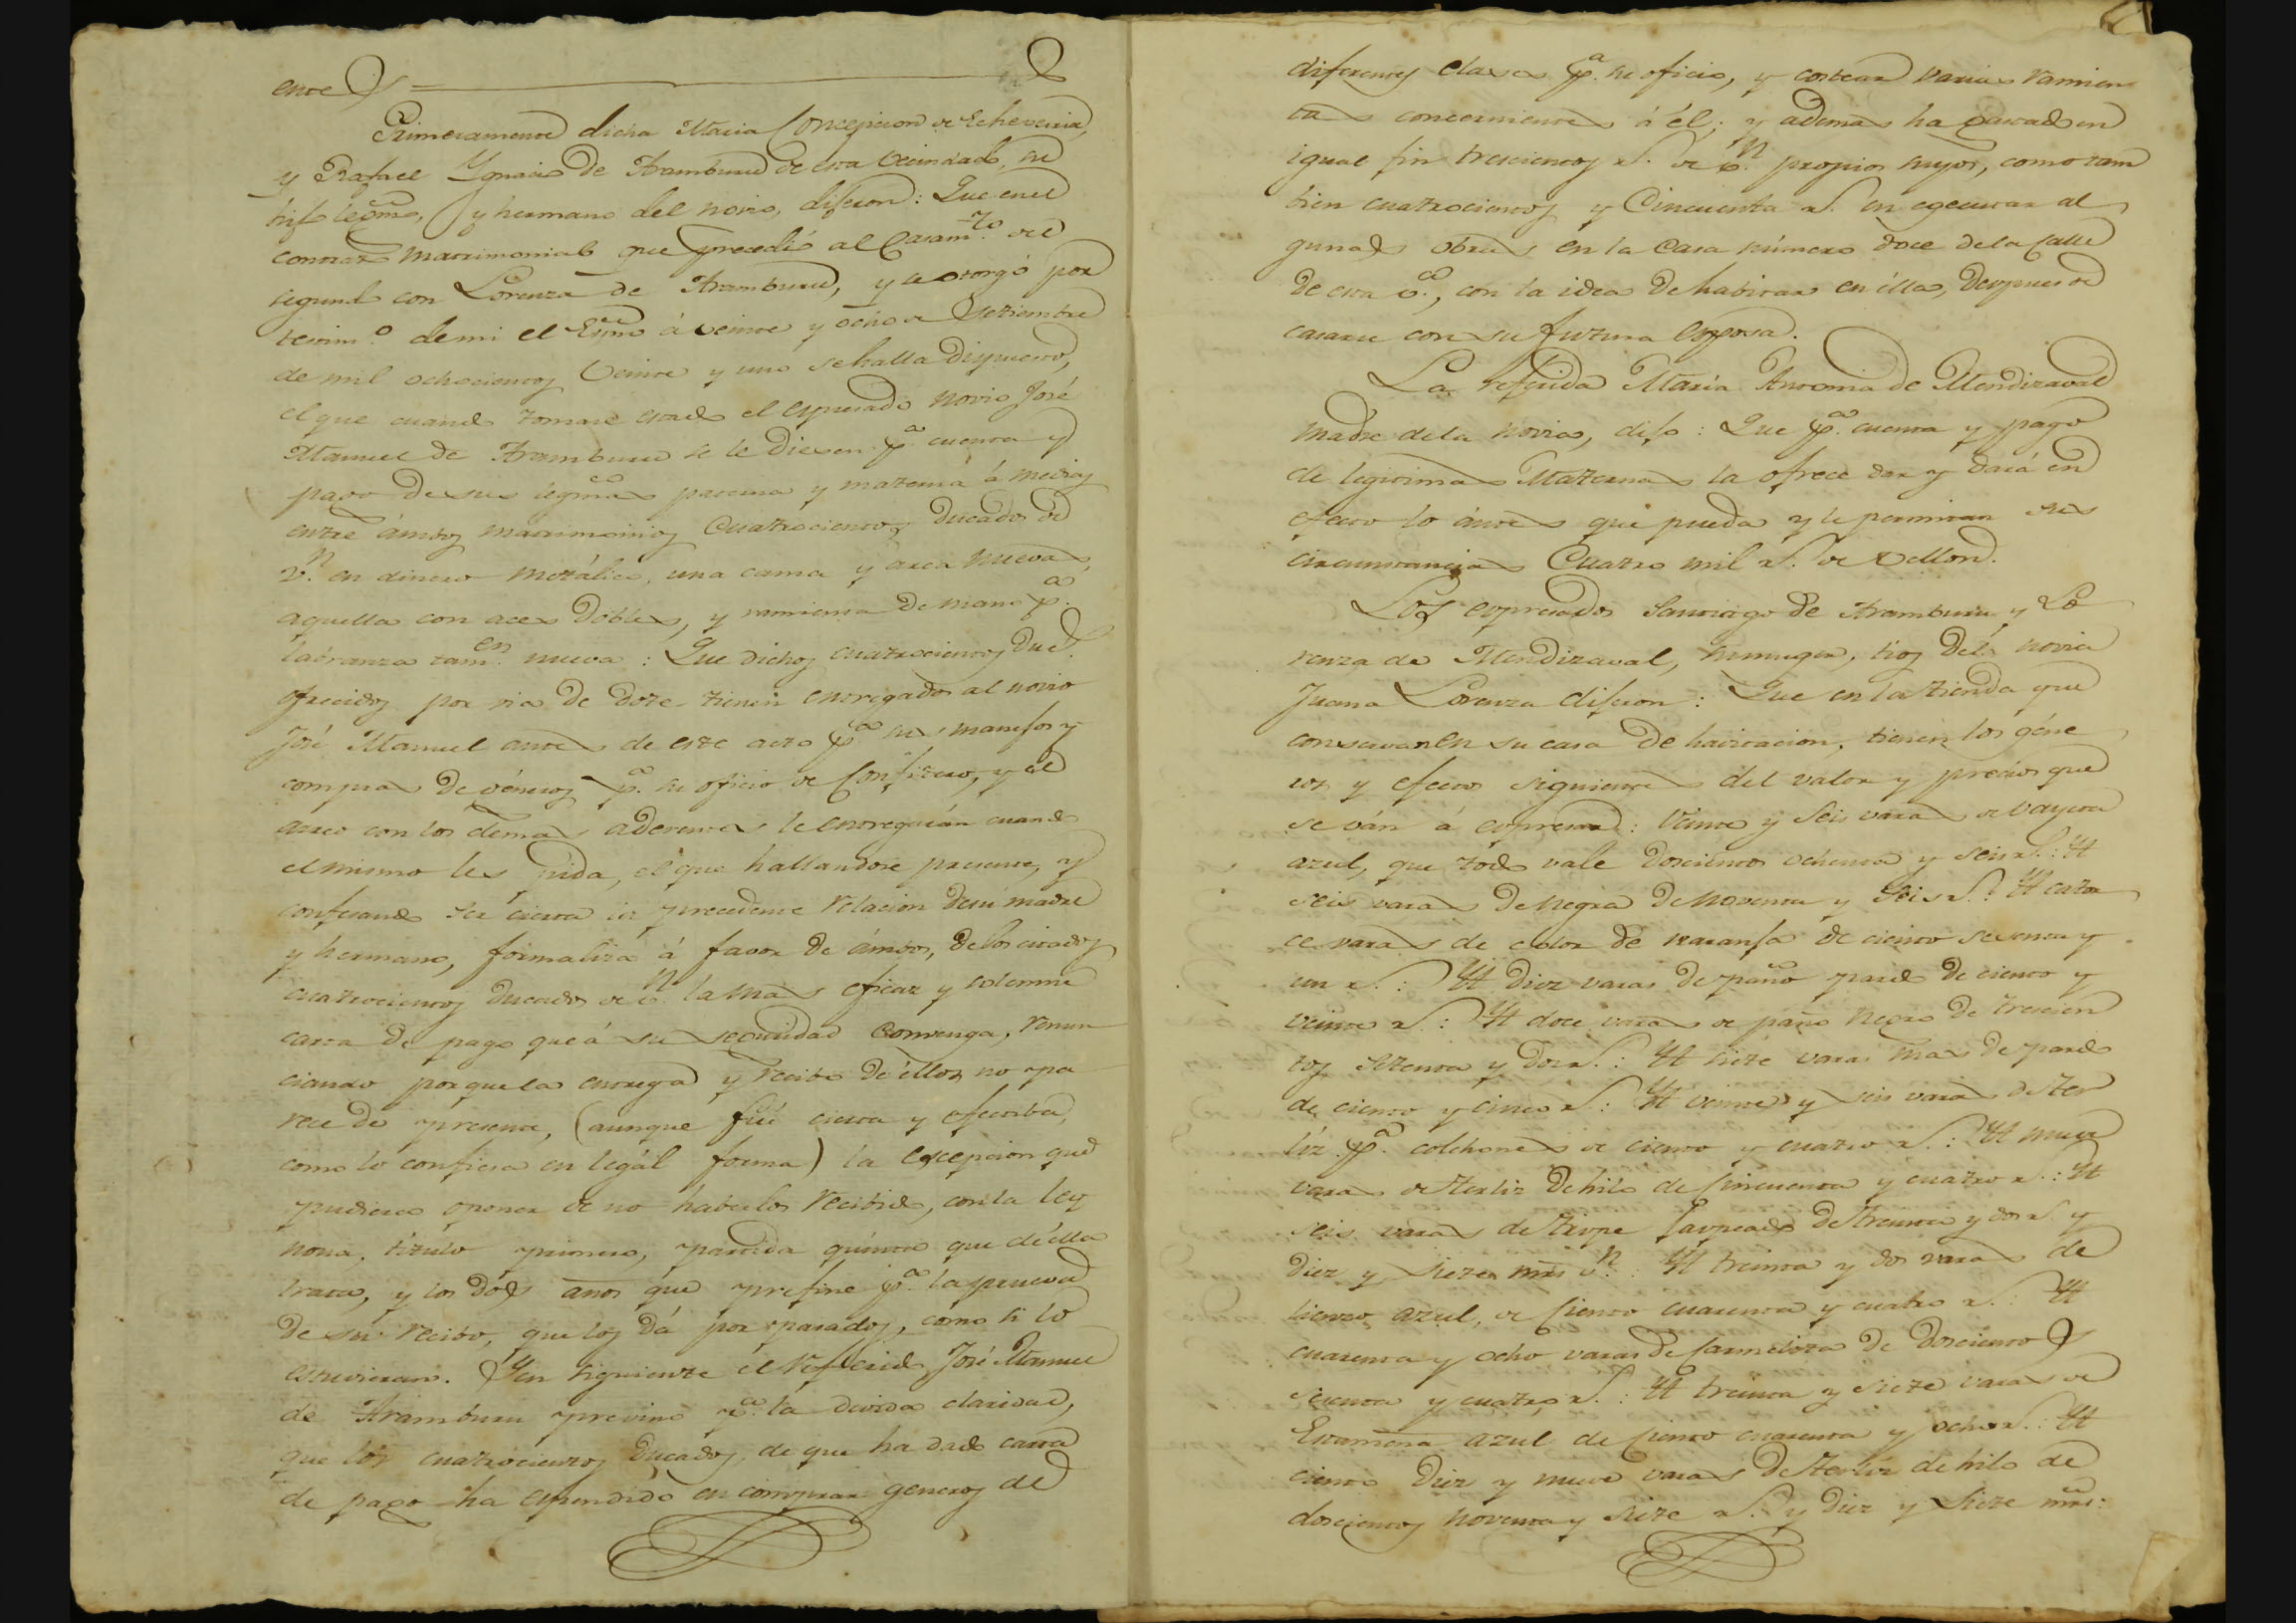 ente
Primeramente dicha Maria Concepcion de Echeverria,
y Rafael Ygnacio de Aramburu de esta vecindad, su
hijo legmo, y hermano del novio, dijeron: Que en el
contrato matrimonial que precedió al Casamto. del
segundo con Lorenza de Aramburu, y se otorgó por
testimo. de mi el Esno á veinte y ocho de Setiembre
de mil ochocientos veinte y uno se halla dispuesto,
el que cuando tomase estado el espresado novio José
Manuel de Aramburu se le diesen pa. cuenta y
pago de sus legmas paterna y materna á medias
entre ámbos matrimonios Cuatrocientos ducados de
vn. en dinero metálico, una cama y arca nueva,
aquella con aces dobles, y ramienta de mano pa.
labranza tamen. nueva: Que dichos cuatrocientos Ducs.
ofrecidos por via de dote tienen entregados al novio
José Manuel antes de este acto pa. sus manejos y
compra de géneros pa. su oficio de Confitero, y el
arreo con los demas aderentes le entregarán cuando
el mismo les pida, el que hallandose presente, y
confesando ser cierta la precedente relacion de su madre
y hermano, formaliza á favor de ámbos, de los citados
cuatrocientos ducados de vn. la mas eficaz y solemne
carta de pago que á su seguridad convenga, renun
ciando porque la entrega y recibo de éllos no pa
rece de presente, (aunque fué cierta y efectiba,
como lo confiesa en legál forma) la escepcion que
pudiera oponer de no haberlos recibido, con la ley
nona, titulo primero, partida quinta que de élla
trata, y los dos años que prefine pa. la prueva
de su recibo, que los dá por pasados, como si lo
estuvieran. Y en siguiente el referido José Manuel
de Aramburu previno pa. la devida claridad,
que los cuatrocientos Ducados, de que ha dado carta
de pago ha espendido en comprar generos de
diferentes clases pa. su oficio, y costear varias ramien
tas concernientes á él; y ademas ha gastado en
igual fin trescientos rs. de vn. propios suyos, como tam
bien cuatrocientos y Cincuenta rs. en egecutar al
gunas obras en la Casa número doce de la Calle
de esta va., con la idea de habitar en élla, despues de
casarse con su futura esposa.
La referida María Antonia de Mendizaval
madre de la novia, dijo: Que pa. cuenta y pago
de legitima Materna la ofrece dar y dará en
efecto lo ántes que pueda y le permitan sus
circunstancias Cuatro mil rs. de vellon.
Los espresados Santiago de Aramburu y Lo
renza de Mendizaval, su muger, tios de la novia
Juana Lorenza dijeron: Que en la tienda que
conservan en su casa de havitacion, tienen los géne
ros y efectos siguientes del valor y precios que
se ván á espresar: Veinte y Seis varas de bayeta
azul, que todo vale doscientos ochenta y seis rs.: Yt
seis varas de negra de noventa y seis rs.: Yt cator
ce varas de color de naranja de ciento sesenta y
un rs.: Yt diez varas de paño pardo de ciento y
veinte rs.: Yt doce varas de paño negro de trescien
tos setenta y dos rs.: Yt siete varas mas de pardo
de ciento y cinco rs.: Yt veinte y seis varas de ter
líz pa. colchones de ciento y cuatro rs.: Yt nueve
varas de terliz de hilo de Cincuenta y cuatro rs.: Yt
seis varas de tripe de treinta y dos rs. y
diez y siete mrs vn.: Yt treinta y dos varas de
lienzo azul, de Ciento cuarenta y cuatro rs.: Yt
cuarenta y ocho varas de de doscientos
sesenta y cuatro rs.: Yt treinta y siete varas de
Estameña azul de Ciento cuarenta y ocho rs.: Yt
ciento diez y nueve varas de terliz de hilo de
doscientos noventa y siete rs. y diez y siete mrs: